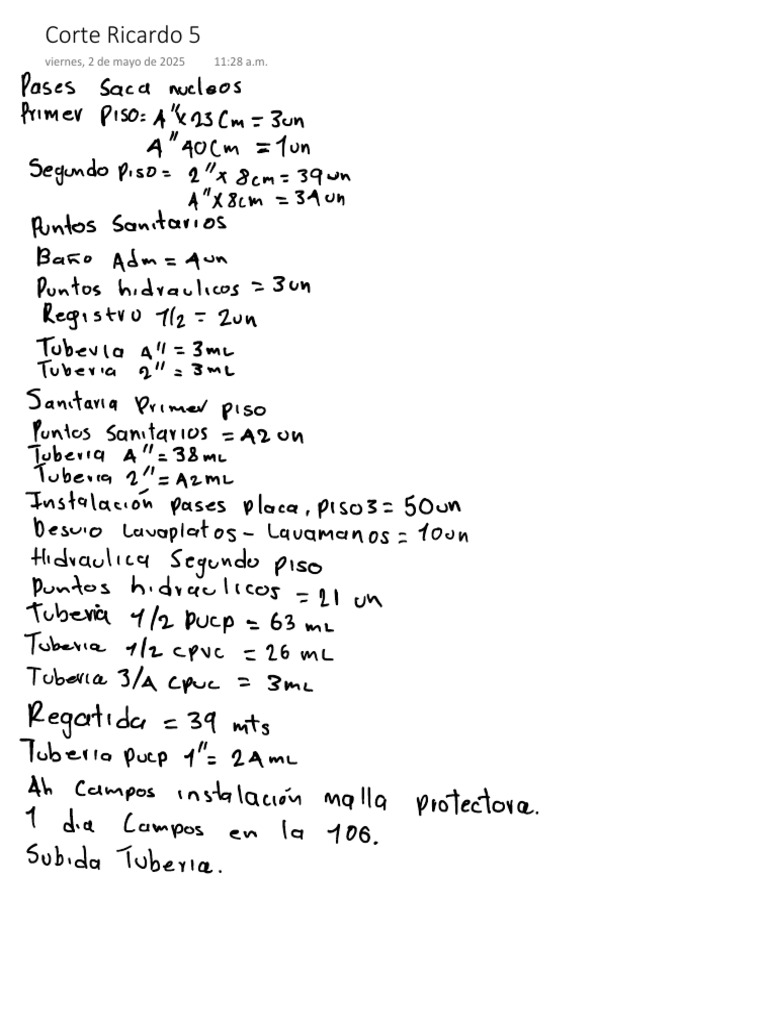 Corte Ricardo 5
viernes, 2 de mayo de 2025 11:28 a.m.
Pases Saca nucleos
Primer Piso: 4" x 23 Cm = 3un
4" 40Cm = 1un
Segundo Piso = 2" x 8cm = 39un
4" x 8cm = 34un
Puntos Sanitarios
Baño Adm = 4un
Puntos hidraulicos = 3un
Registro 1/2 = 2un
Tuberia 4" = 3mL
Tuberia 2" = 3mL
Sanitaria Primer piso
Puntos Sanitarios = 42 un
Tuberia 4" = 38mL
Tuberia 2" = 42mL
Instalación pases placa, piso3 = 50un
Desvio Lavaplatos - Lavamanos = 10un
Hidraulica Segundo piso
Puntos hidraulicos = 21 un
Tuberia 1/2 pvcp = 63 mL
Tuberia 1/2 cpvc = 26 mL
Tuberia 3/4 cpvc = 3mL
Regatida = 39 mts
Tuberia pvcp 1" = 24mL
4h Campos instalación malla protectora.
1 dia Campos en la 106.
Subida Tuberia.